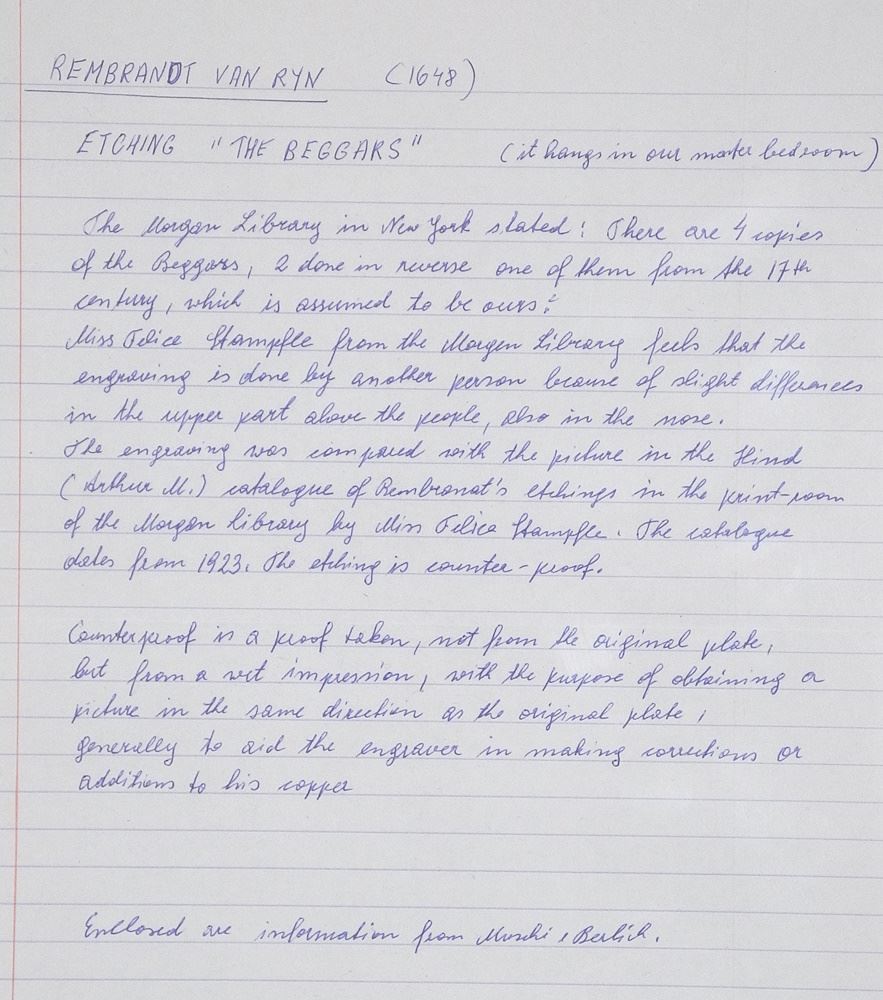 REMBRANDT VAN RYN (1648)
ETCHING "THE BEGGARS" (it hangs in our master bedroom)
The Morgan Library in New York stated: There are 4 copies
of the Beggars, 2 done in reverse one of them from the 17th
century, which is assumed to be ours:
Miss Felice Stampfle from the Morgen Library feels that the
engraving is done by another person because of slight differences
in the upper part above the people, also in the nose.
The engraving was compared with the picture in the Hind
(Arthur M.) catalogue of Rembrandt's etchings in the print-room
of the Morgan Library by Miss Felice Stampfle. The catalogue
dates from 1923. The etching is counter-proof.
Counterproof is a proof taken, not from the original plate,
but from a wet impression, with the purpose of obtaining a
picture in the same direction as the original plate,
generally to aid the engraver in making corrections or
additions to his copper
Enclosed are information from